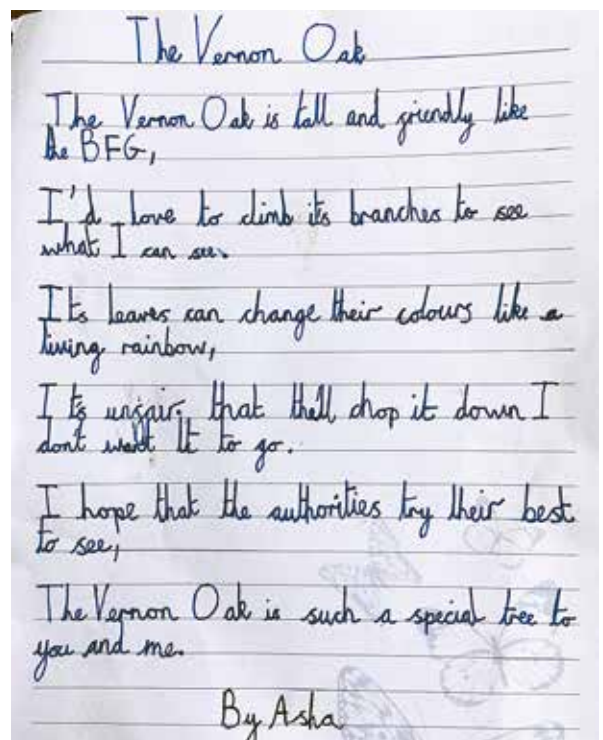 The Vernon Oak
The Vernon Oak is tall and friendly like
the BFG,
I'd love to climb its branches to see
what I can see.
Its leaves can change their colours like a
living rainbow,
It's unfair that thell chop it down I
dont want it to go.
I hope that the authorities try their best
to see,
The Vernon Oak is such a special tree to
you and me.
By Asha